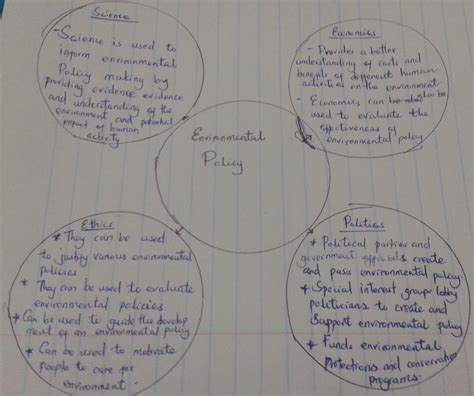 Science
- Science is used to
inform environmental
Policy making by
providing evidence evidence
and understanding of the
environment and potential
impact of human
activity
Economics
- Provides a better
understanding of costs and
benefits of different human
activities on the environment
- Economics can also be
used to evaluate the
effectiveness of
environmental policy
Environmental
Policy
Ethics
* They can be used
to justify various environmental
policies
* They can be used to evaluate
environmental policies
* Can be used to guide the develop
ment of an environmental policy
* Can be used to motivate
people to care for
environment.
Politics
* Political parties and
government officials create
and pass environmental policy
* Special interest groups lobby
politicians to create and
Support environmental policy
* Funds environmental
Protections and conservation
programs.